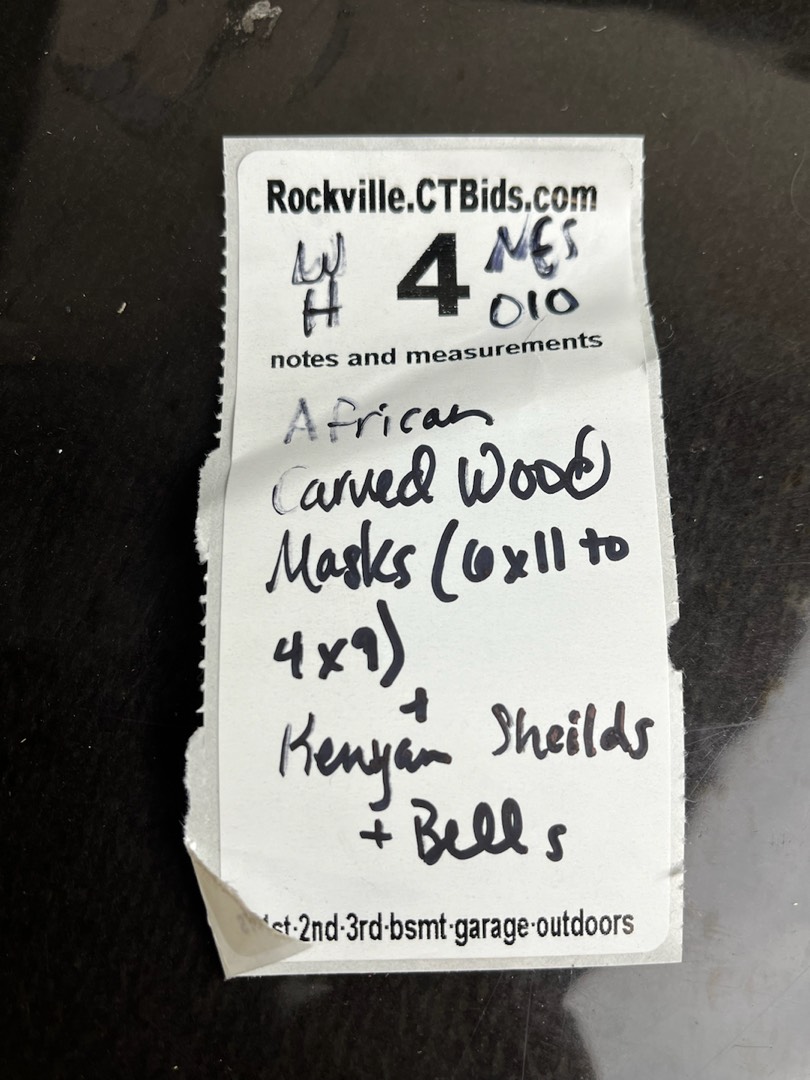 Rockville.CTBids.com
W 4 NES
H 010
notes and measurements
African
Carved Wood
Masks (6x11 to
4x9)
+
Kenyan Sheilds
+ Bells
1st·2nd·3rd·bsmt·garage·outdoors